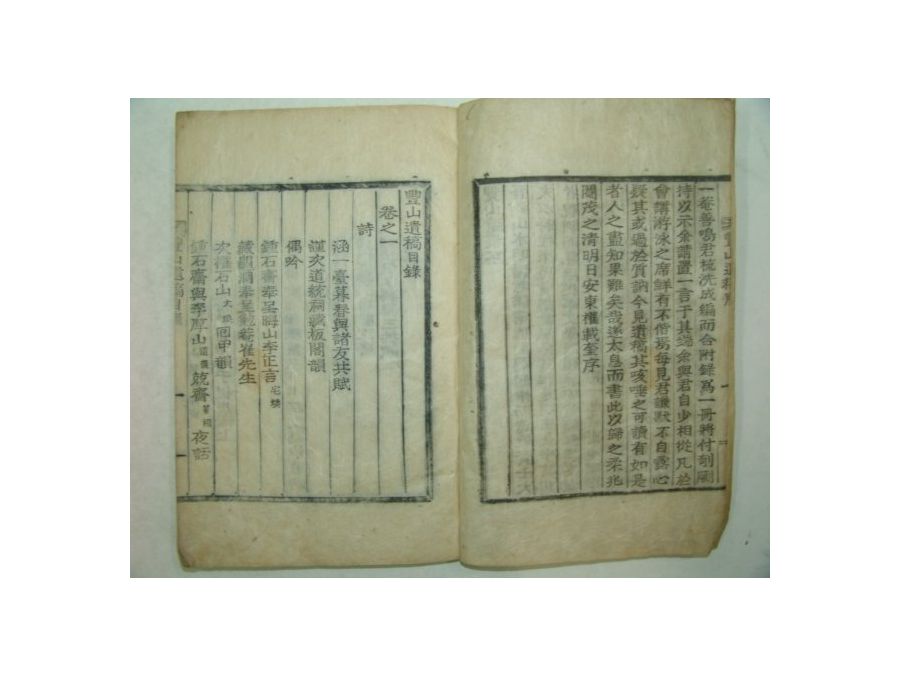 一菴善鳴君梳洗成編而合附錄爲一冊將付剞劂
持以示余請置一言于其端余與君自少相從凡於
會講游泳之席鮮有不偕焉每見君謙默不自露心
疑其或過於質訥今見遺稿其咳唾之可讀有如是
者人之盡知果難矣哉遂太息而書此以歸之柔兆
閹茂之清明日安東權載奎序
豐山遺稿目錄
卷之一
詩
涵一臺暮春與諸友共賦
謹次道統祠藏板閣韻
偶吟
鍾石齋奉呈晦山李正言
先生
次權石山回甲韻
鍾石齋與李厚山兢齋夜話